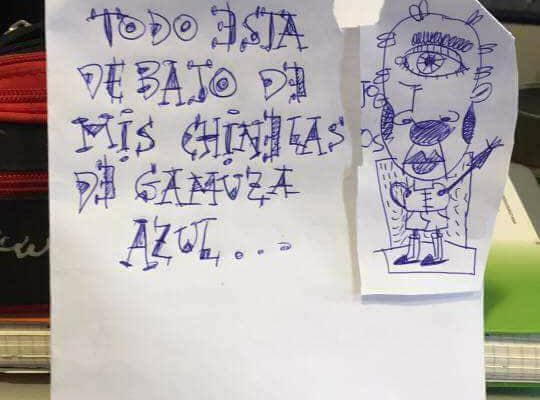 TODO ESTA
DEBAJO DE
MIS CHINELAS
DE GAMUZA
AZUL...